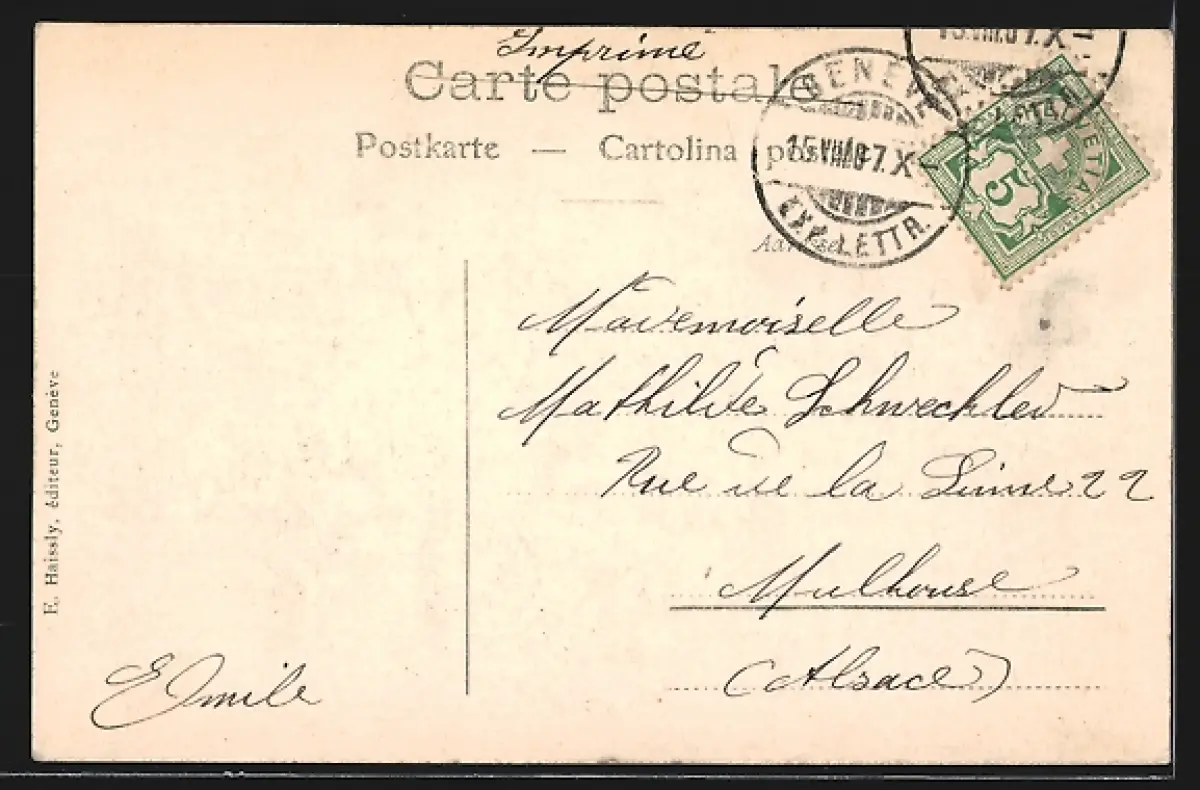 Imprimé
Carte postale
Postkarte — Cartolina postale
GENÈVE
15.VIII.07.X
EXP. LETTR.
15.VIII.07.X
HELVETIA
5
Mademoiselle
Mathilde Schwechler
Rue de la 22
Mulhouse
(Alsace)
Emile
E. Haissly, éditeur, Genève